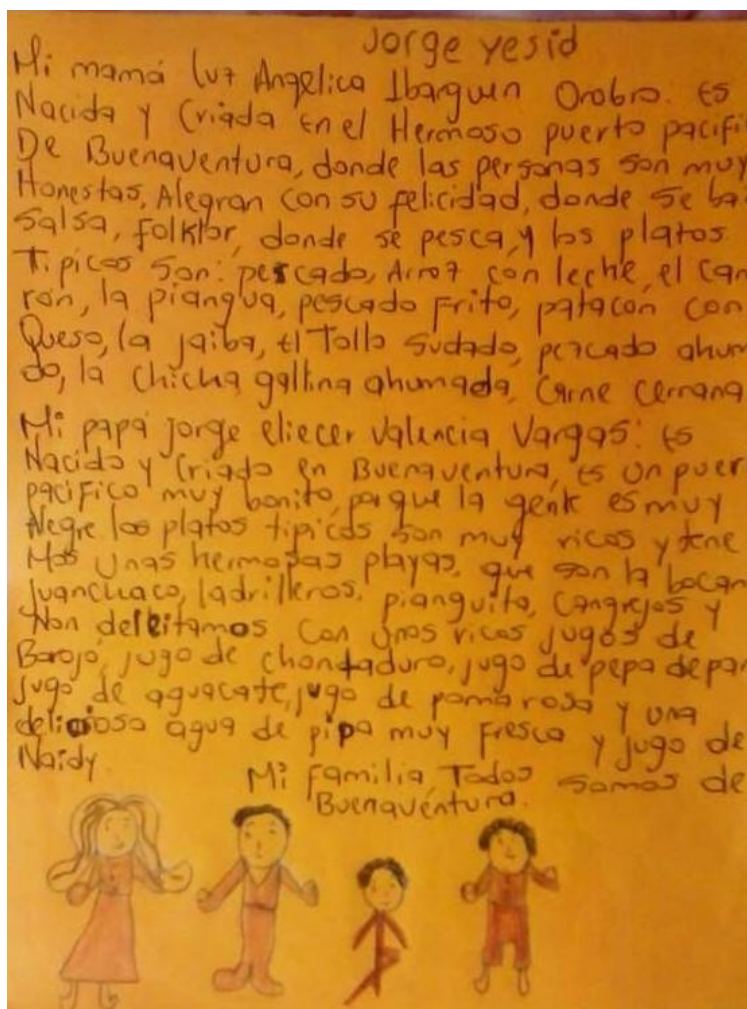 Jorge yesid
Mi mamá luz Angelica Ibarguen Orobio. Es
Nacida y Criada En el Hermoso puerto pacifi
De Buenaventura, donde las personas son muy
Honestas, Alegran con su felicidad, donde se bai
Salsa, folklor, donde se pesca, y los platos
Tipicos son: pescado, Arroz con leche, el cam
rón, la piangua, pescado frito, patacon con
Queso, la jaiba, El Tollo sudado, pezcado ahum
do, la chicha, gallina ahumada, Carne cerrana
Mi papá jorge eliecer valencia Vargas: Es
Nacido y Criado en Buenaventura, es un puer
pacifico muy bonito, porque la gente es muy
Alegre los platos tipicos son muy ricos y tene
Mos Unas hermosas playas, que son la bocan
Juanchaco, ladrilleros, pianguita, cangrejos y
Non deleitamos Con unos ricos jugos de
Borojó, jugo de chontaduro, jugo de pepa de pan
jugo de aguacate, jugo de pomarosa y una
deliciosa agua de pipa muy fresca y jugo de
Naidy.
Mi familia Todos somos de
Buenaventura.